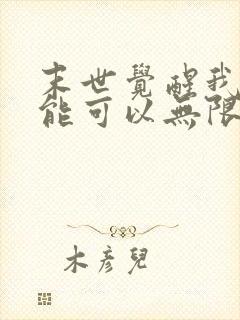 末世覺醒我
能可以無限
木彥兒